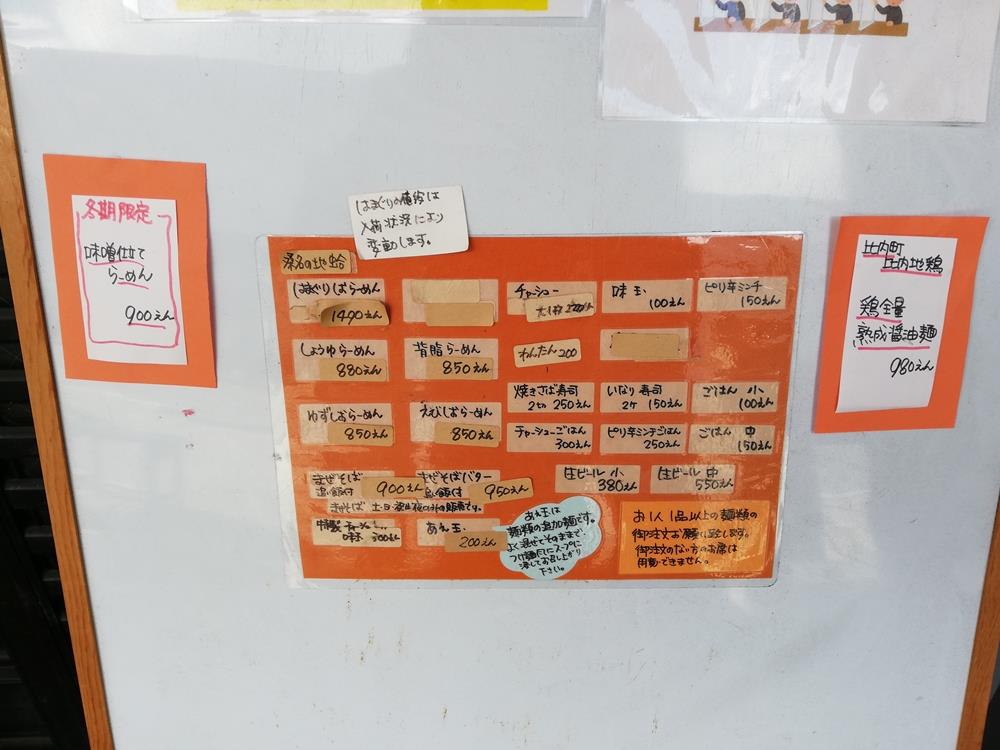 冬期限定
味噌仕立て
らーめん
900えん
はまぐりの値段は
入荷状況により
変動します。
桑名の地蛤
はまぐりしおらーめん
1490えん
チャーシュー
味玉
100えん
ピリ辛ミンチ
150えん
しょうゆらーめん
880えん
背脂らーめん
850えん
わんたん200
焼きさば寿司
2切 250えん
いなり寿司
2ケ 150えん
ごはん 小
100えん
ゆずしおらーめん
850えん
えびしおらーめん
850えん
チャーシューごはん
300えん
ピリ辛ミンチごはん
250えん
ごはん 中
150えん
まぜそば
追い飯付
900えん
まぜそばバター
追い飯付
950えん
生ビール 小
380えん
生ビール 中
550えん
まぜそば 土・日・祝
特製
味玉 300えん
あえ玉
200えん
あえ玉は
麺類の追加麺です。
よく混ぜてそのままで、
つけ麺風にスープに
浸してお召し上がり
下さい。
お1人1品以上の麺類の
御注文お願い致します。
御注文のない方のお席は
用意できません。
比内町
比内地鶏
鶏全量
熟成醤油麺
980えん